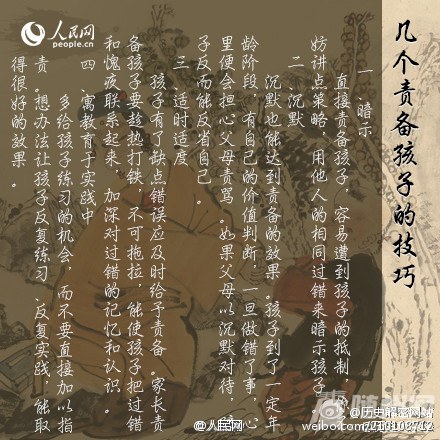 人民网
people.cn
几个责备孩子的技巧
一、暗示
直接责备孩子，容易遭到孩子的抵制，
妨讲点策略，用他人的相同过错来暗示孩子
二、沉默
沉默也能达到责备的效果。孩子到了一定年
龄阶段，有自己的价值判断，一旦做错了事，心
里便会担心父母责骂。如果父母以沉默对待，
子反而能反省自己。
三、适时适度
孩子有了缺点错误应及时给予责备。家长责
备孩子要趁热打铁，不可拖拉；能使孩子把过错
和愧疚联系起来，加深对过错的记忆和认识。
四、寓教育于实践中
多给孩子练习的机会，而不要直接加以指
责。想办法让孩子反复练习、反复实践，能取
得很好的效果。
@人民网
@历史解密网站